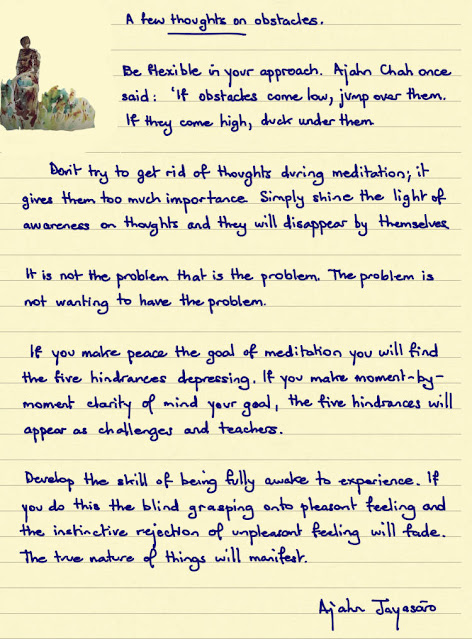 A few thoughts on obstacles.
Be flexible in your approach. Ajahn Chah once
said: 'If obstacles come low, jump over them.
If they come high, duck under them
Don't try to get rid of thoughts during meditation; it
gives them too much importance. Simply shine the light of
awareness on thoughts and they will disappear by themselves
It is not the problem that is the problem. The problem is
not wanting to have the problem.
If you make peace the goal of meditation you will find
the five hindrances depressing. If you make moment-by-
moment clarity of mind your goal, the five hindrances will
appear as challenges and teachers.
Develop the skill of being fully awake to experience. If
you do this the blind grasping onto pleasant feeling and
the instinctive rejection of unpleasant feeling will fade.
The true nature of things will manifest.
Ajahn Jayasāro